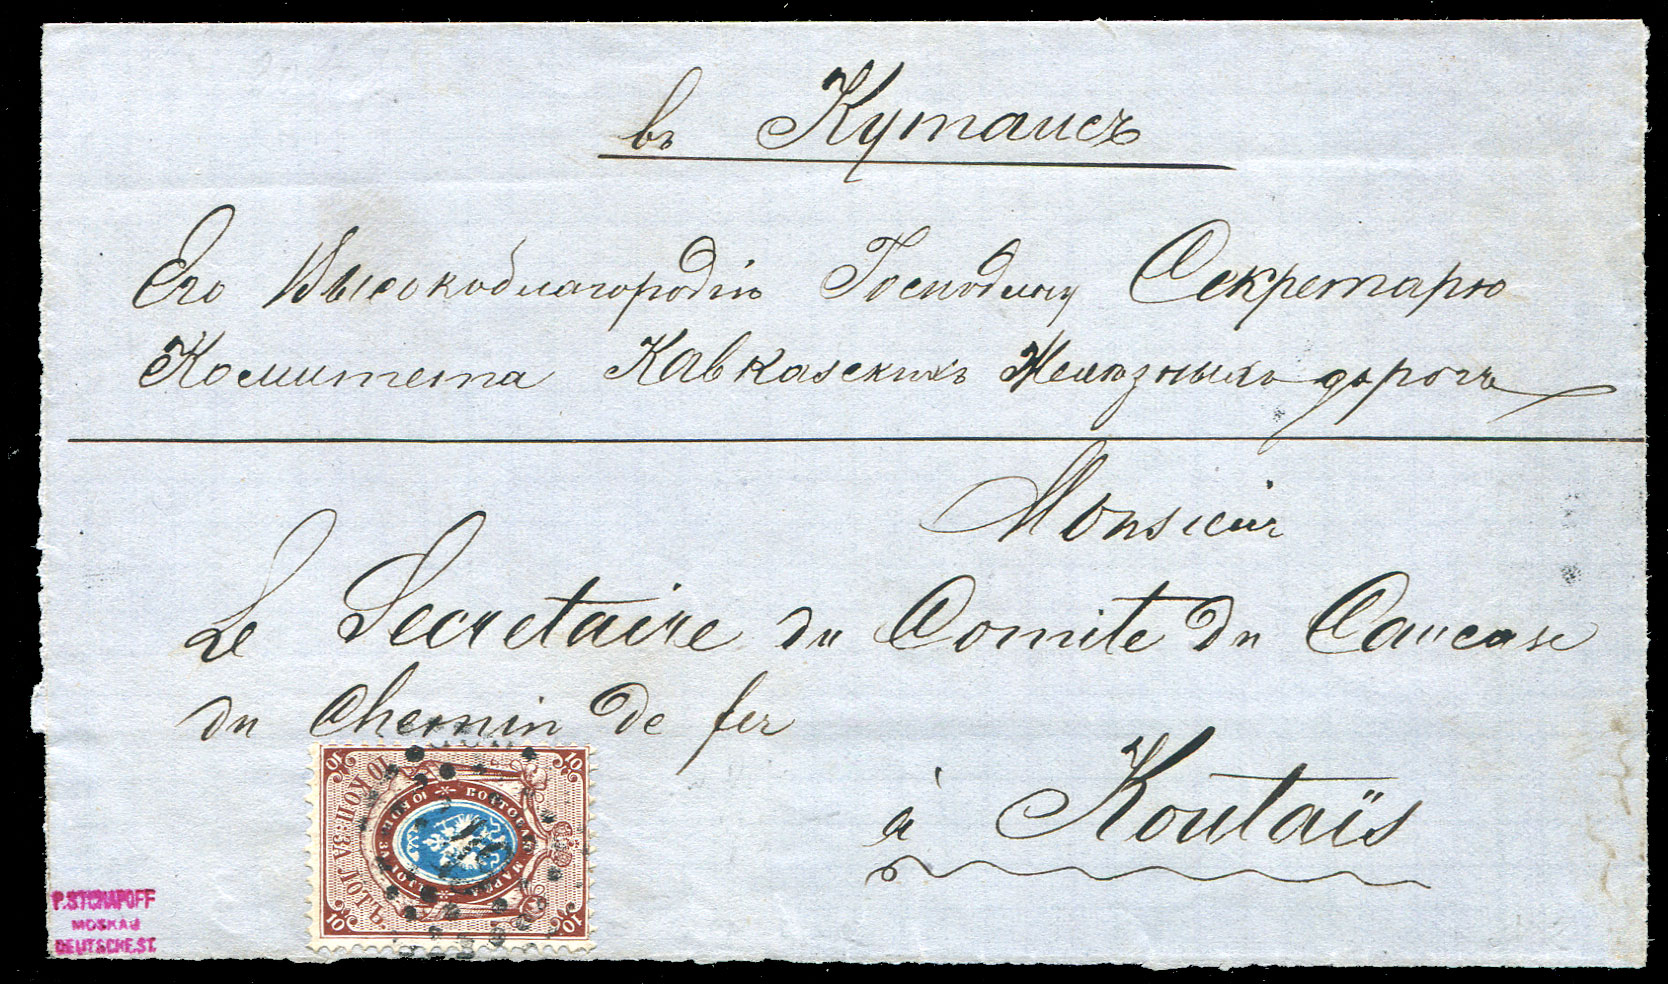 въ Кутаисъ
Его Высокоблагородію Господину Секретарю
Комитета Кавказскихъ Желѣзныхъ дорогъ
Monsieur
Le Secretaire du Comite du Caucase
du Chemin de fer
à Koutaïs
10 КОП. ЗА ЛОТЪ
ПОЧТОВАЯ МАРКА
10 КОП. ЗА ЛОТЪ
10
10
10
10
P. STCHAPOFF
MOSKAU
DEUTSCHE ST.